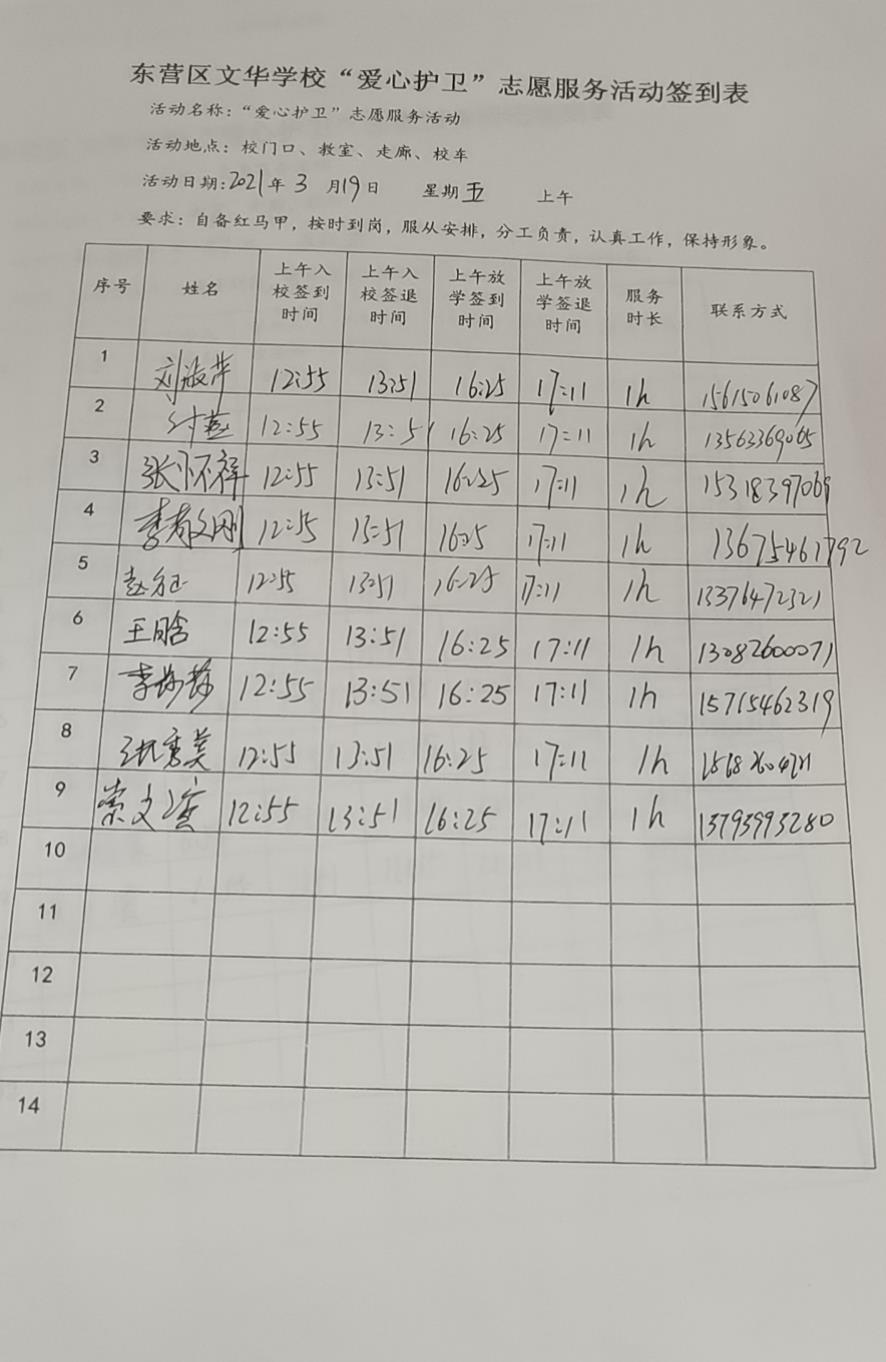 东营区文华学校“爱心护卫”志愿服务活动签到表
活动名称：“爱心护卫”志愿服务活动
活动地点：校门口、教室、走廊、校车
活动日期：2021年 3 月19日 星期 五 上午
要求：自备红马甲，按时到岗，服从安排，分工负责，认真工作，保持形象。
序号 姓名 上午入校签到时间 上午入校签退时间 上午放学签到时间 上午放学签退时间 服务时长 联系方式
1 12:55 13:51 16:25 17:11 1h 15615061087
2 12:55 13:51 16:25 17:11 1h 13563369065
3 张怀祥 12:55 13:51 16:25 17:11 1h 15318397069
4 12:55 13:51 16:25 17:11 1h 13675461792
5 12:55 13:51 16:25 17:11 1h 13376472321
6 王晗 12:55 13:51 16:25 17:11 1h 13082600071
7 12:55 13:51 16:25 17:11 1h 15715462319
8 12:55 13:51 16:25 17:11 1h
9 12:55 13:51 16:25 17:11 1h 13793993280
10
11
12
13
14